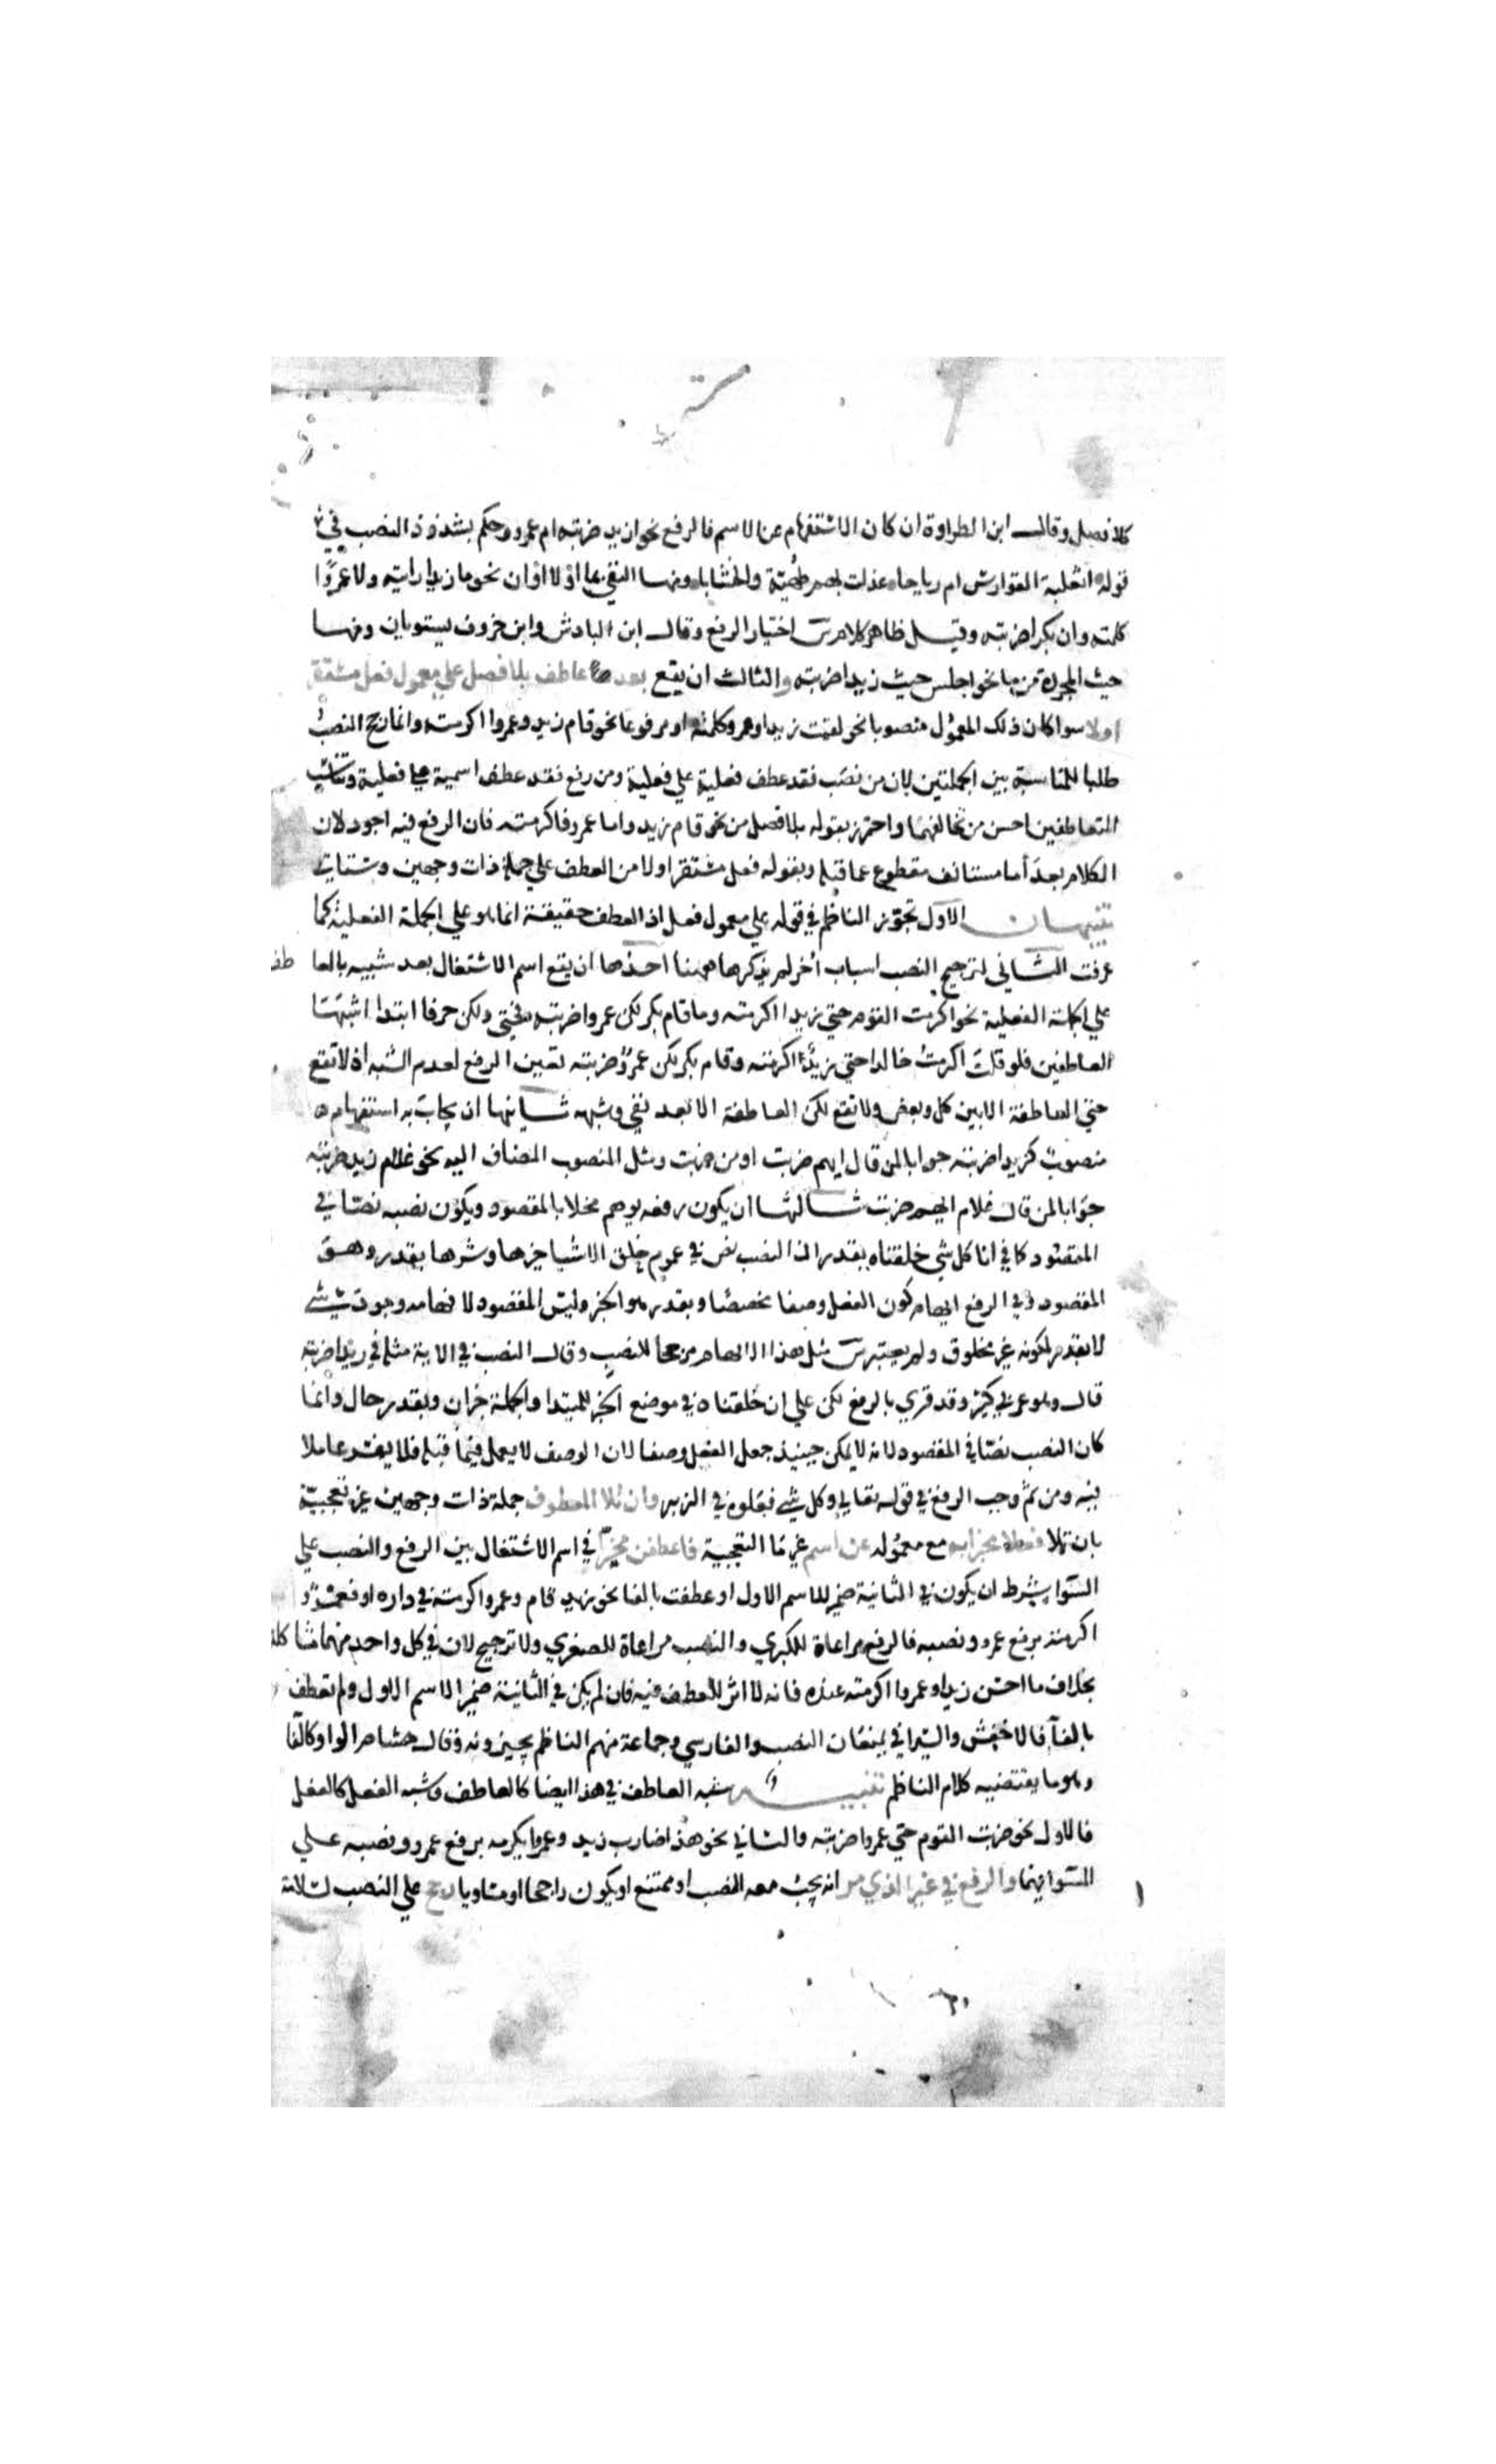 كلا فصل وقال ابن الطراوة ان كان الاستفهام عن الاسم فالرفع نحو ازيد ضربته ام عمرو وحكم بشذوذ النصب في
قوله اثعلبة الفوارس ام رياحا عدلت بهم طهية والخشابا ومنها النفي بما او لا او ان نحو ما زيدا رايته ولا عمروا
كلمته وان بكرا ضربته وقيل ظاهر كلام س اختيار الرفع وقال ابن الباذش وابن خروف يستويان ومنها
حيث المجردة من ما نحو اجلس حيث زيدا ضربته والثالث ان يقع بعد عاطف بلا فصل على معمول فعل مستقر
اولا سوا كان ذلك المعمول منصوبا نحو لقيت زيدا وعمروا كلمته او مرفوعا نحو قام زيد وعمروا اكرمته وانما رجح النصب
طلبا للمناسبة بين الجملتين لان من نصب فقد عطف فعلية علي فعلية ومن رفع فقد عطف اسمية علي فعلية وتناسب
المتعاطفين احسن من تخالفهما واحترز بقوله بلا فصل من نحو قام زيد واما عمرو فاكرمته فان الرفع فيه اجود لان
الكلام بعد أما مستانف مقطوع عما قبله وبقوله فعل مستقر اولا من العطف علي جملة ذات وجهين وستاتي
تنبيهان الاول تجوز الناظم في قوله علي معمول فعل اذ العطف حقيقة انما هو علي الجملة الفعلية كما
عرفت الثاني لترجيح النصب اسباب أخر لم يذكرها ههنا احدها ان يقع اسم الاشتغال بعد شبيه بالعاطف
علي الجملة الفعلية نحو اكرمت القوم حتي زيدا اكرمته وما قام بكر لكن عمروا ضربته فحتي ولكن حرفا ابتدا اشبهتا
العاطفين فلو قلت اكرمت خالدا حتي زيد اكرمته وقام بكر لكن عمرو ضربته تعين الرفع لعدم الشبه اذ لا تقع
حتي العاطفة الا بين كل وبعض ولا تقع لكن العاطفة الا بعد نفي وشبهه ثانيها ان يجاب به استفهام
منصوب كزيدا ضربته جوابا لمن قال ايهم ضربت او من ضربت ومثل المنصوب المضاف اليه نحو غلام زيد ضربته
جوابا لمن قال غلام ايهم ضربت ثالثها ان يكون رفعه يوهم مخلا بالمقصود ويكون نصبه نصا في
المقصود كما في انا كل شي خلقناه بقدر اذ النصب نص في عموم خلق الاشيا خيرها وشرها بقدر وهو
المقصود وفي الرفع ايهام كون الفعل وصفا مخصصا وبقدر هو الخبر وليس المقصود لايهامه وجود شي
لا بقدر لكونه غير مخلوق ولم يعتبر س مثل هذا الايهام مرجحا للنصب وقال النصب في الاية مثله في زيدا ضربته
قال وهو عربي كثير وقد قري بالرفع لكن علي ان خلقناه في موضع الخبر للمبتدا والجملة خبر ان وبقدر حال وانما
كان النصب نصا في المقصود لانه لا يمكن حينيذ جعل الفعل وصفا لان الوصف لا يعمل فيما قبله فلا يفسر عاملا
فيه ومن ثم وجب الرفع في قوله تعالي وكل شي فعلوه في الزبر وان تلا المعطوف جملة ذات وجهين غير تعجبية
بان تلا فعلا مخبرا به مع معموله عن اسم غير ما التعجبية فاعطفن مخيرا في اسم الاشتغال بين الرفع والنصب علي
السوا بشرط ان يكون في الثانية ضمير للاسم الاول او عطفت بالفا نحو زيد قام وعمروا اكرمته في داره او فعمروا
اكرمته برفع عمرو ونصبه فالرفع مراعاة للكبري والنصب مراعاة للصغري ولا ترجيح لان في كل واحد منهما مشاكلة
بخلاف ما احسن زيدا وعمروا اكرمته عنده فانه لا اثر للعطف فيه فان لم يكن في الثانية ضمير الاسم الاول ولم تعطف
بالفا فالاخفش والسيرافي يمنعان النصب والفارسي وجماعة منهم الناظم يجيزونه وقال هشام الواو كالفا
وهو ما يقتضيه كلام الناظم تنبيه شبه العاطف في هذا ايضا كالعاطف وشبه الفعل كالفعل
فالاول نحو ضربت القوم حتي عمروا ضربته والثاني نحو هذا ضارب زيد وعمروا يكرمه برفع عمرو ونصبه علي
السوا فيهما والرفع في غير الذي مر انه يجب معه النصب او ممتنع او يكون راجحا او متساويا رجح علي النصب لثلاثة